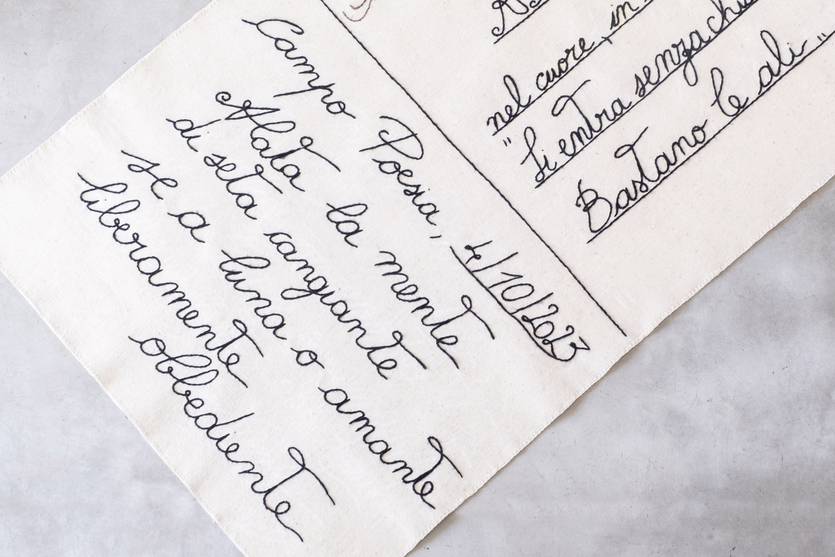 Campo Poesia, 4/10/2023
Alata la mente
di seta cangiante
se a luna o amante
liberamente
obbediente
nel cuore, in
"Si entra senza
Bastano le ali..